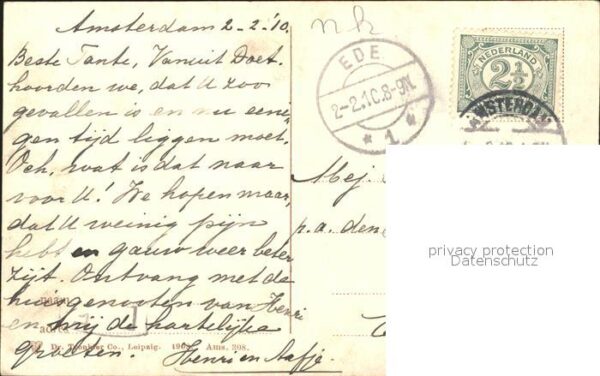 Amsterdam 2-2.'10.
Beste Tante, Vanuit Doet.
hoorden we, dat U zoo
gevallen is en nu eeni-
gen tijd liggen moet.
Och, wat is dat naar
voor U! We hopen maar,
dat U weinig pijn
hebt en gauw weer beter
zijt. Ontvang met de
huisgenooten van Henri
en mij de hartelijke
groeten. Henri en Aafje.
Dr. Trenkler Co., Leipzig. 190 Ams. 398.
EDE
2-2.10.8-9N.
1
NEDERLAND
2½
AMSTERDAM
Mej.
p.a. den
privacy protection
Datenschutz